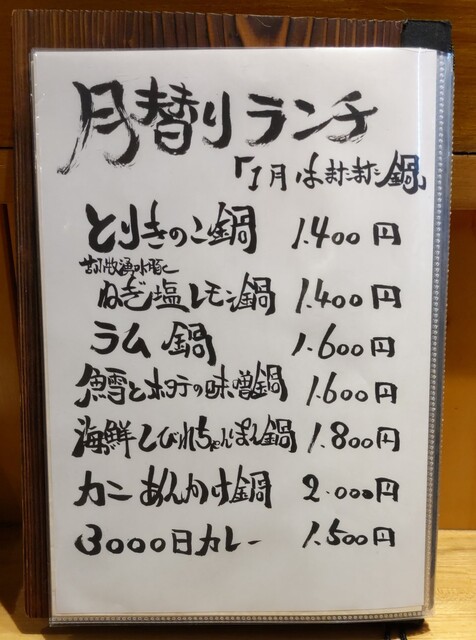 月替りランチ
「1月はまたまた鍋」
とりきのこ鍋 1.400円
ねぎ塩レモン鍋 1.400円
ラム鍋 1.600円
鱈とホタテの味噌鍋 1.600円
海鮮しびれちゃんぽん鍋 1.800円
カニあんかけ鍋 2.000円
3000日カレー 1.500円